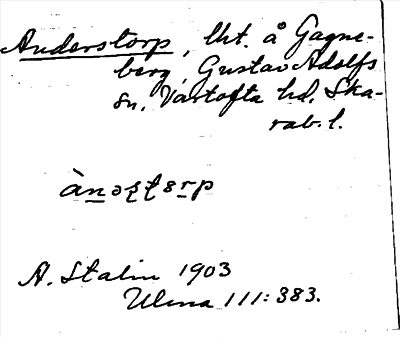 Anderstorp, lht. å Gagne-
berg, Gustav Adolfs
sn, Vartofta hd, Ska-
rab. l.
A. Stalin 1903
Ulma 111:383.